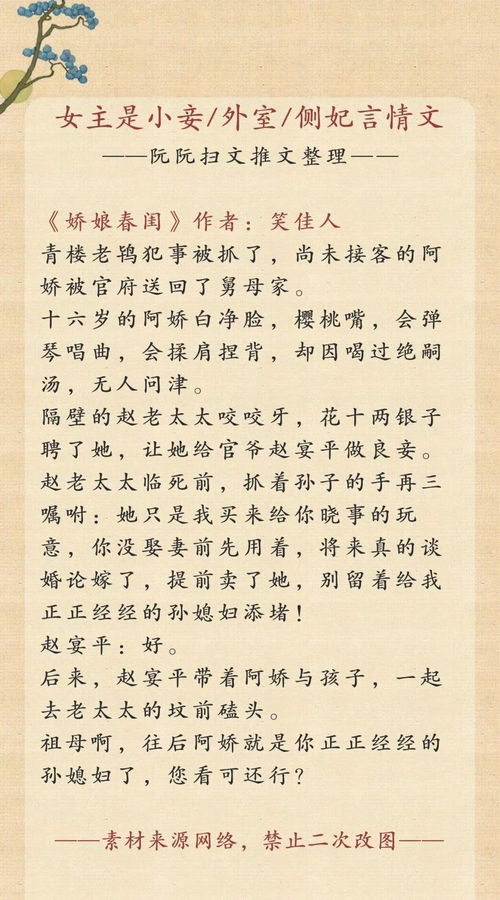 女主是小妾/外室/侧妃言情文
——阮阮扫文推文整理——
《娇娘春闺》作者：笑佳人
青楼老鸨犯事被抓了，尚未接客的阿
娇被官府送回了舅母家。
十六岁的阿娇白净脸，樱桃嘴，会弹
琴唱曲，会揉肩捏背，却因喝过绝嗣
汤，无人问津。
隔壁的赵老太太咬咬牙，花十两银子
聘了她，让她给官爷赵宴平做良妾。
赵老太太临死前，抓着孙子的手再三
嘱咐：她只是我买来给你晓事的玩
意，你没娶妻前先用着，将来真的谈
婚论嫁了，提前卖了她，别留着给我
正正经经的孙媳妇添堵！
赵宴平：好。
后来，赵宴平带着阿娇与孩子，一起
去老太太的坟前磕头。
祖母啊，往后阿娇就是你正正经经的
孙媳妇了，您看可还行？
——素材来源网络，禁止二次改图——